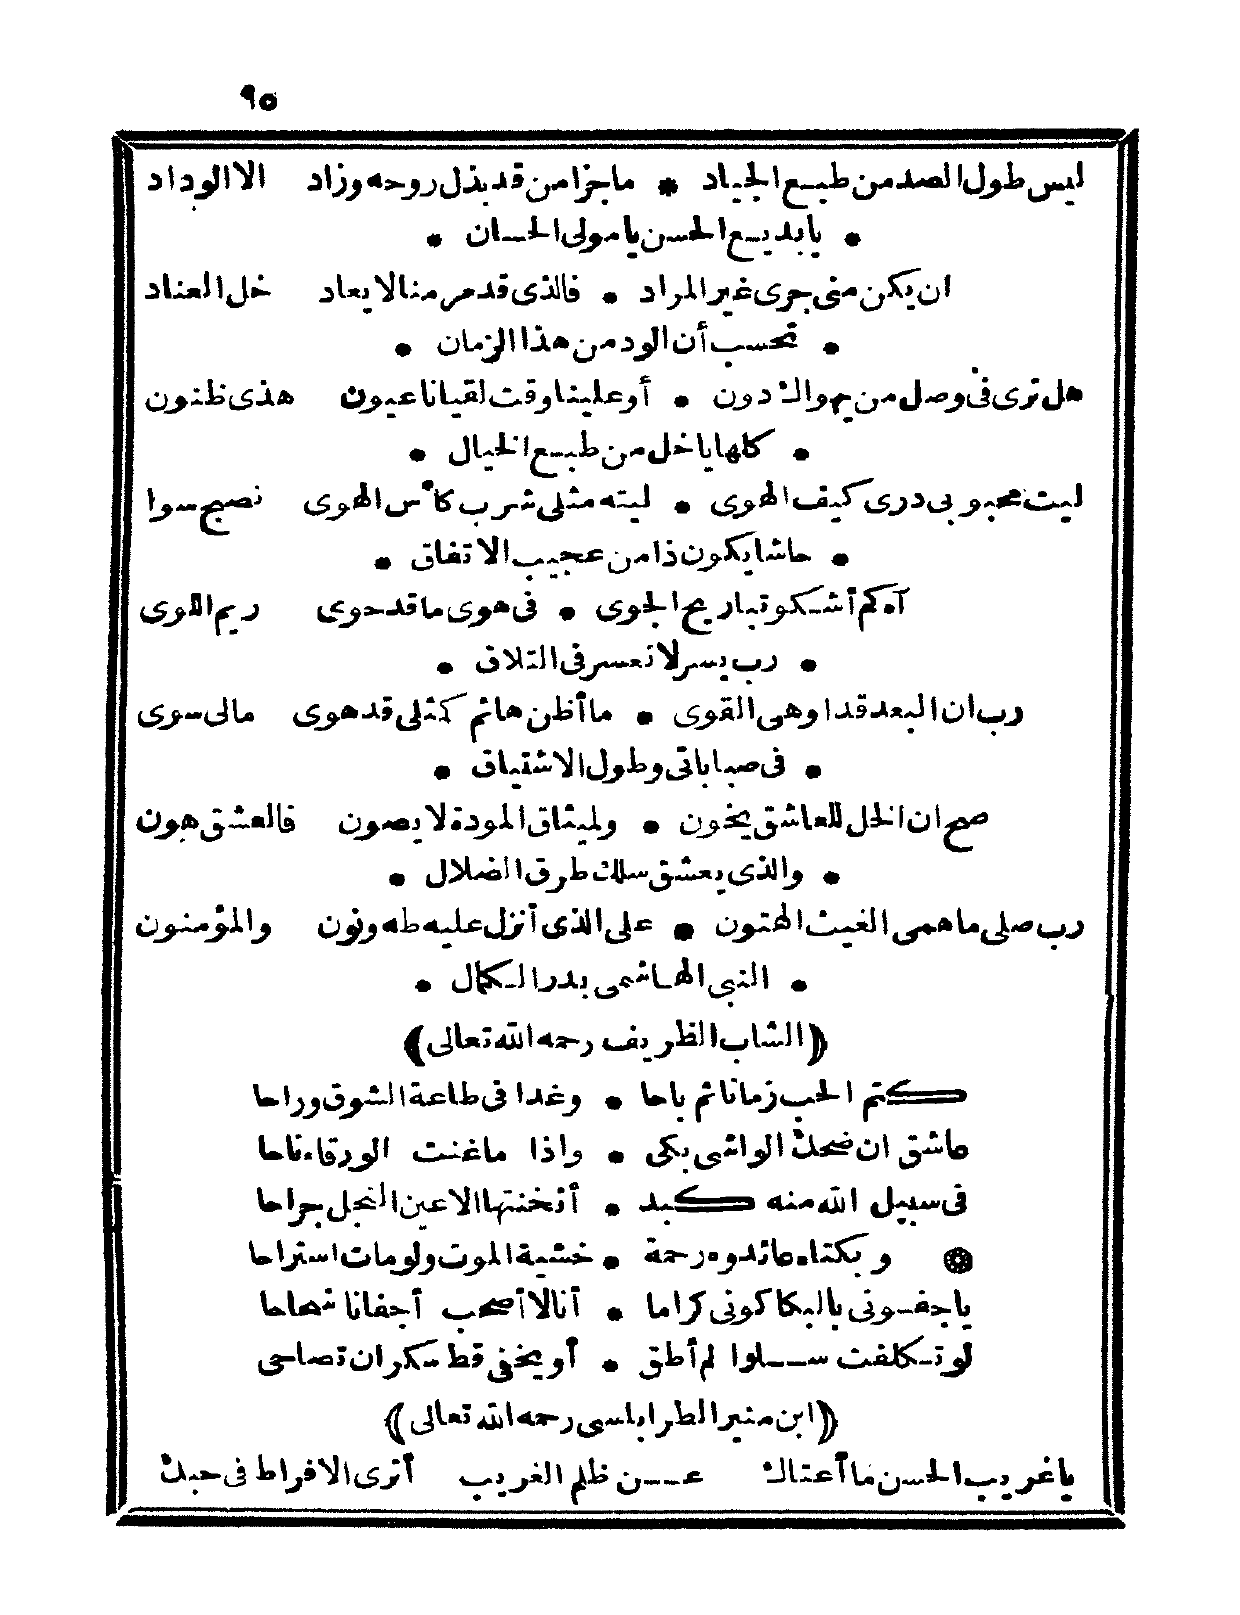 ٩٥
ليس طول الصد من طبع الجياد * ما جزا من قد بذل روحه وزاد الا الوداد
• يا بديع الحسن يا مولى الحسان •
ان يكن منى جرى غير المراد • فالذى قد مر منا لا يعاد خل العناد
• تحسب أن الود من هذا الزمان •
هل ترى فى وصل من يهوالـ دون • أو علينا وقت لقيانا عيون هذى ظنون
• كلها يا خل من طبع الخيال •
ليت محبوبى درى كيف الهوى • ليته مثلى شرب كأس الهوى نصبح سوا
• حاشا يكون ذا من عجيب الاتفاق •
آه كم أشكو تباريح الجوى • فى هوى ما قد حوى ريم اللوى
• رب يسر لا تعسر فى التلاق •
رب ان البعد قد اوهى القوى • ما أظن هائم كمثلى قد هوى مالى سوى
• فى صباباتى وطول الاشتياق •
صح ان الخل للعاشق يخون • ولميثاق المودة لا يصون فالعشق هون
• والذى يعشق سلك طرق الضلال •
رب صلى ما همى الغيث الهتون • على الذى أنزل عليه طه ونون والمؤمنون
• النبى الهاشمى بدر الكمال •
﴿الشاب الظريف رحمه الله تعالى﴾
كتم الحب زمانا ثم باحا • وغدا فى طاعة الشوق وراحا
عاشق ان ضحك الواشى بكى • واذا ما غنت الورقاء ناحا
فى سبيل الله منه كبد • أثخنتها الاعين النجل جراحا
* وبكتاه عائدوه رحمة • خشية الموت ولو مات استراحا
يا جفونى بالبكا كونى كراما • أنا لا أصحب أجفانا شحاحا
لو تكلفت سلوا لم أطق • أو يخفى قط سكران تصاحى
﴿ابن منير الطرابلسى رحمه الله تعالى﴾
يا غريب الحسن ما أغناك عن ظلم الغريب أترى الافراط فى حبك